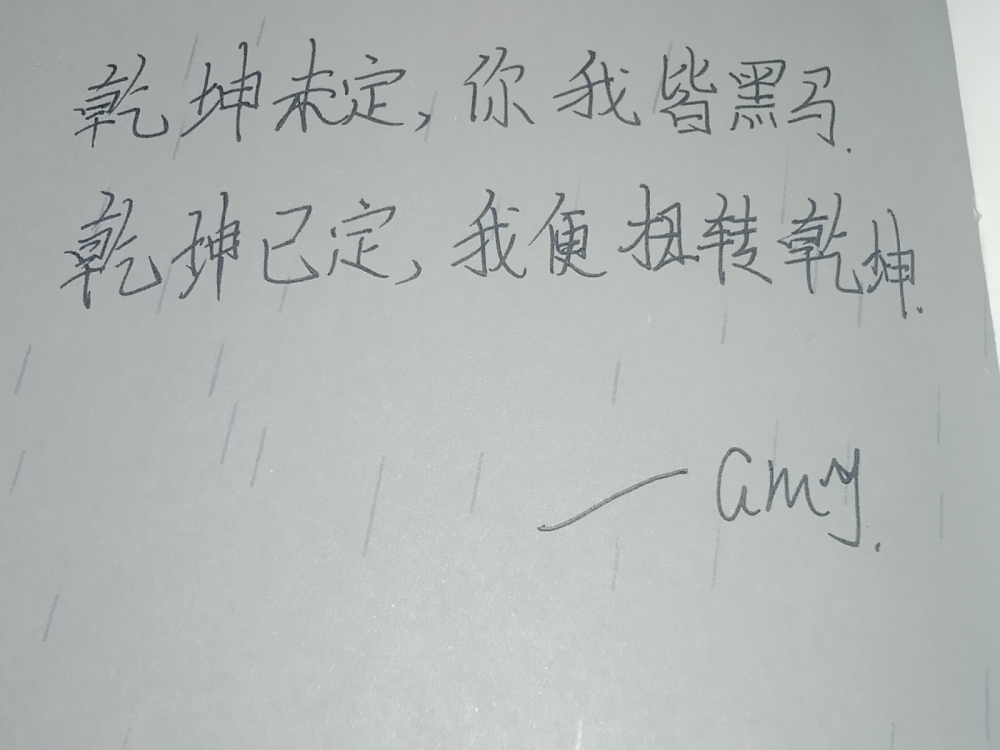 乾坤未定,你我皆黑马.
乾坤已定,我便扭转乾坤.
—amy.